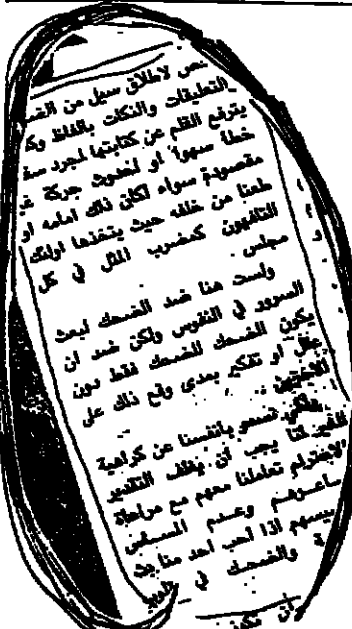 لاطلاق سيل من
التعليقات والنكات بالفاظ
يترفع القلم عن كتابتها لمجرد
خطأ سهوا او لحدوث حركة
مقصودة سواء اكان ذلك امامه او
طعنا من خلفه حيث يتخذها اولئك
التافهون كمضرب المثل في كل
مجلس .
ولست هنا ضد الضحك لبعث
السرور في النفوس ولكن ضد ان
يكون الضحك للضحك فقط دون
عقل او تفكير بمدى وقع ذلك على
الآخرين ..
ولكي نسمو بأنفسنا عن كراهية
الغير لنا يجب ان يغلف التقدير
والاحترام تعاملنا معهم مع مراعاة
وعدم المساس
اذا احب احد منا بث
والضحك في
ان تكون